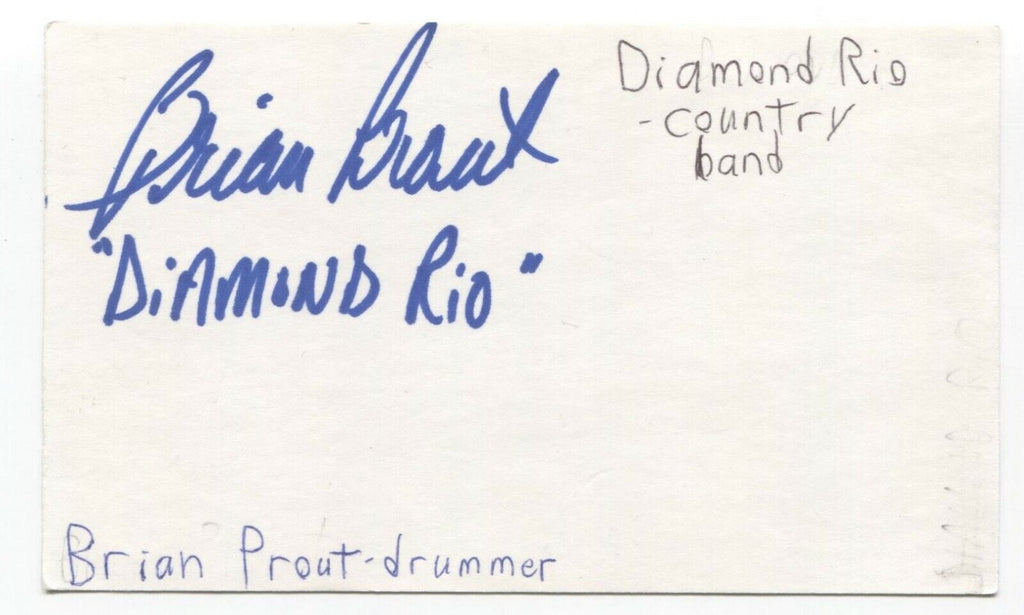 Brian Prout
"DiAMOND Rio"
Diamond Rio
- country
band
Brian Prout-drummer